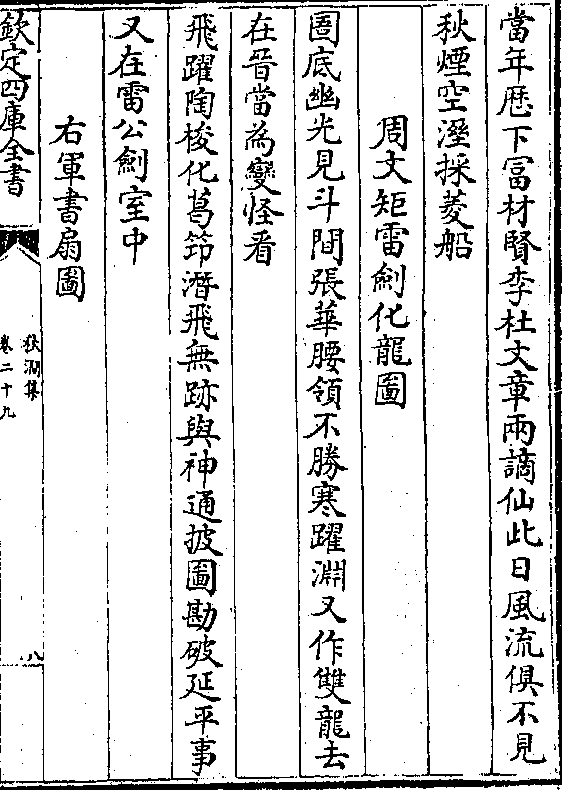 當年歴下富材賢李杜文章兩謫仙此日風流俱不見
秋煙空溼採菱船
周文矩雷劍化龍圖
圄底幽光見斗間張華腰領不勝寒躍淵又作雙龍去
在晉當為變怪看
飛躍陶梭化葛笻潛飛無跡與神通披圖勘破延平事
又在雷公劍室中
右軍書扇圖
欽定四庫全書
秋澗集
卷二十九
八